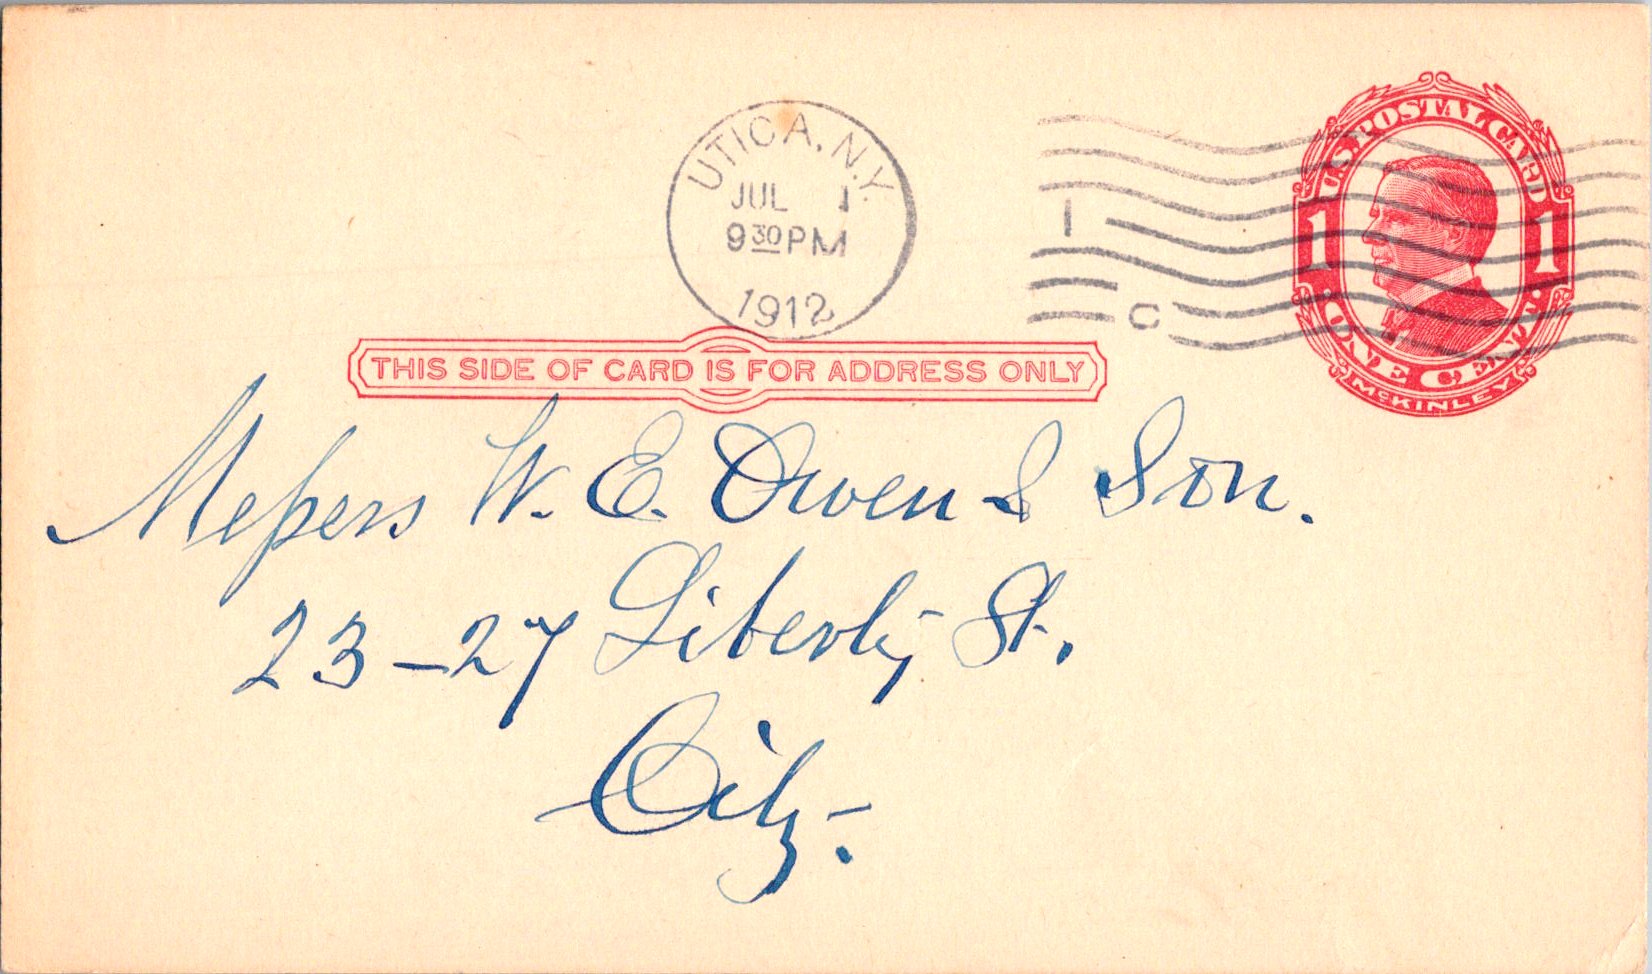 UTICA, N.Y.
JUL 1
9 30 PM
1912
1
C
U.S. POSTAL CARD
1 1
· ONE CENT ·
McKINLEY
THIS SIDE OF CARD IS FOR ADDRESS ONLY
Messers W. E. Owen & Son.
23-27 Liberty St.
City.